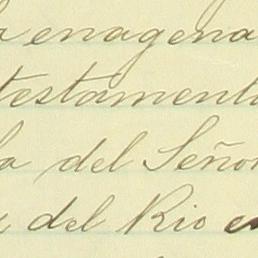 a enagena
testamento
la del Señor
y del Rio en